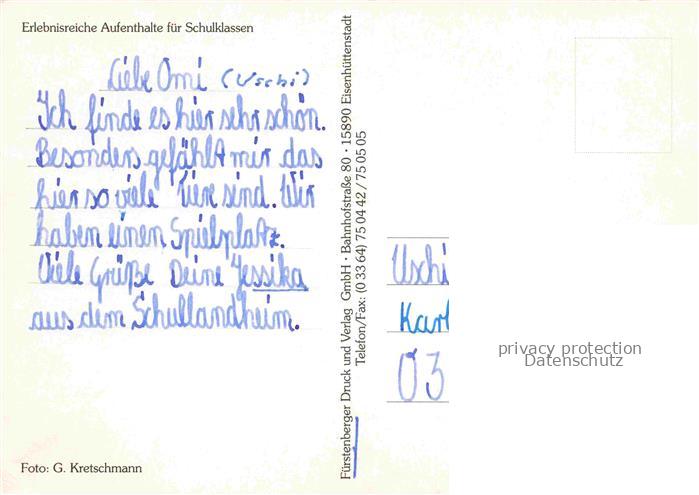 Erlebnisreiche Aufenthalte für Schulklassen
Liebe Omi (Uschi)
Ich finde es hier sehr schön.
Besonders gefählt mir das
hier so viele Tiere sind. Wir
haben einen Spielplatz.
Viele Grüße Deine Jessika
aus dem Schullandheim.
Foto: G. Kretschmann
Fürstenberger Druck und Verlag GmbH · Bahnhofstraße 80 · 15890 Eisenhüttenstadt
Telefon/Fax: (0 33 64) 75 04 42 / 75 05 05
Uschi
Karl
03
privacy protection
Datenschutz